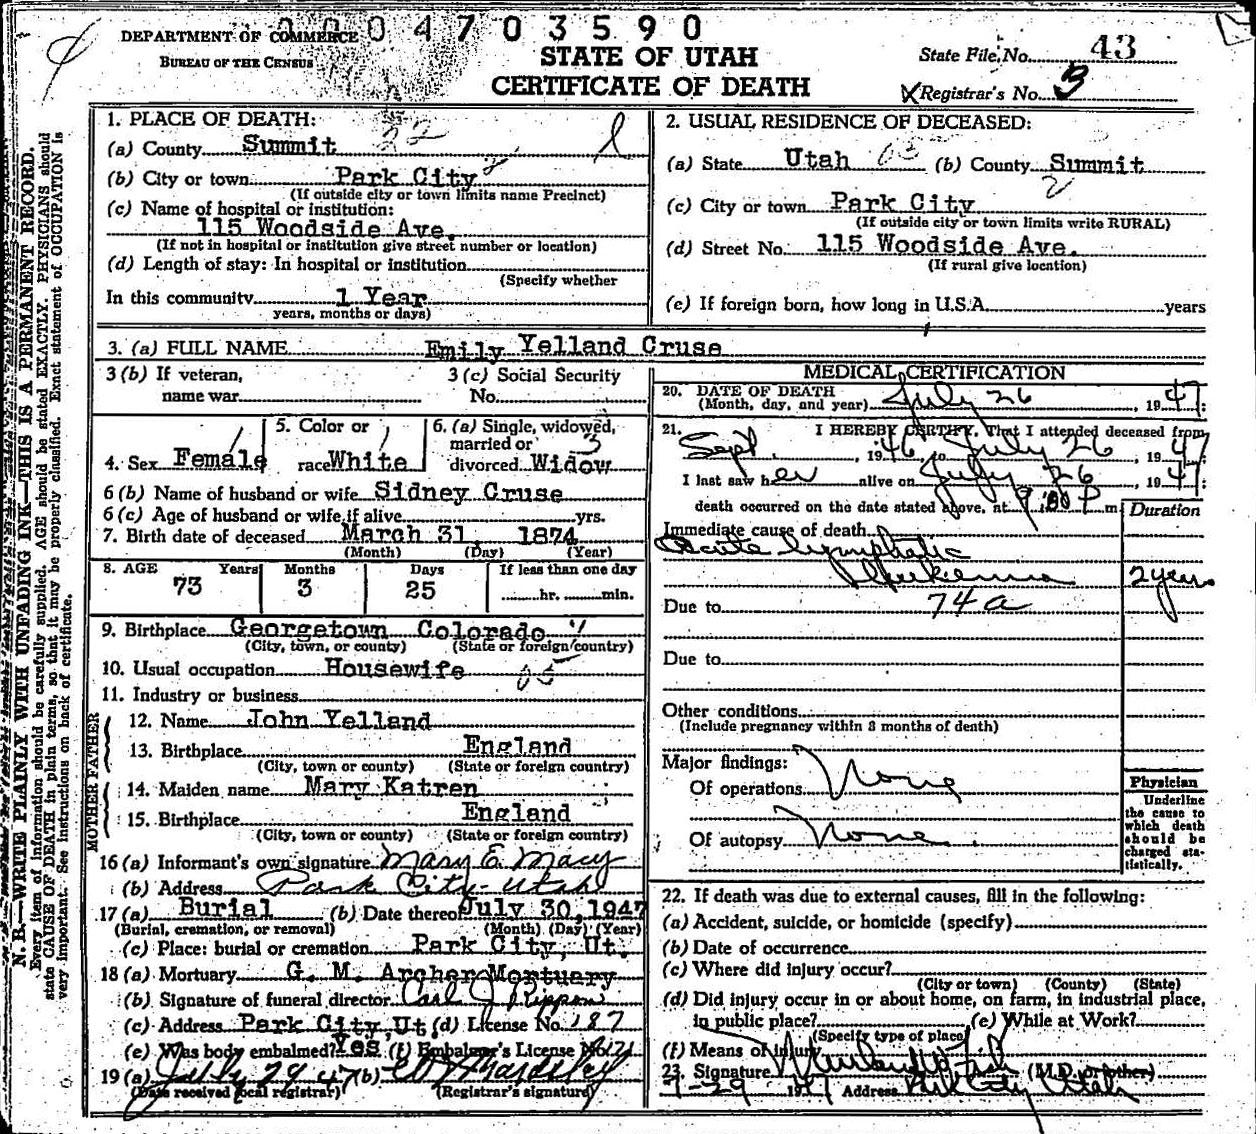 0004703590
DEPARTMENT OF COMMERCE
BUREAU OF THE CENSUS
STATE OF UTAH
CERTIFICATE OF DEATH
State File No. 43
X Registrar's No. 3
N. B.—WRITE PLAINLY WITH UNFADING INK—THIS IS A PERMANENT RECORD.
Every item of information should be carefully supplied. AGE should be stated EXACTLY. PHYSICIANS should
state CAUSE OF DEATH in plain terms, so that it may be properly classified. Exact statement of OCCUPATION is
very important. See instructions on back of certificate.
1. PLACE OF DEATH:
(a) County Summit 22
(b) City or town Park City 2
(If outside city or town limits name Precinct)
(c) Name of hospital or institution:
115 Woodside Ave.
(If not in hospital or institution give street number or location)
(d) Length of stay: In hospital or institution
(Specify whether
In this community 1 Year
years, months or days)
2. USUAL RESIDENCE OF DECEASED:
(a) State Utah 03 (b) County Summit
2
(c) City or town Park City
(If outside city or town limits write RURAL)
(d) Street No. 115 Woodside Ave.
(If rural give location)
(e) If foreign born, how long in U.S.A. years
3. (a) FULL NAME Emily Yelland Cruse
3 (b) If veteran,
name war
3 (c) Social Security
No.
4. Sex Female
5. Color or
race White
6. (a) Single, widowed,
married or
divorced Widow 3
6 (b) Name of husband or wife Sidney Cruse
6 (c) Age of husband or wife, if alive yrs.
7. Birth date of deceased March 31, 1874
(Month) (Day) (Year)
8. AGE Years Months Days If less than one day
73 3 25 hr. min.
9. Birthplace Georgetown Colorado
(City, town, or county) (State or foreign country)
10. Usual occupation Housewife 05
11. Industry or business
FATHER
12. Name John Yelland
13. Birthplace England
(City, town or county) (State or foreign country)
MOTHER
14. Maiden name Mary Katren
15. Birthplace England
(City, town or county) (State or foreign country)
16 (a) Informant's own signature Mary E. Macy
(b) Address Park City - Utah
17 (a) Burial (b) Date thereof July 30, 1947
(Burial, cremation, or removal) (Month) (Day) (Year)
(c) Place: burial or cremation Park City, Ut.
18 (a) Mortuary G. M. Archer Mortuary
(b) Signature of funeral director Carl J. Rippon
(c) Address Park City, Ut. (d) License No. 187
(e) Was body embalmed? Yes (f) Embalmer's License No. 171
19 (a) July 29 47 (b)
(Date received local registrar) (Registrar's signature)
MEDICAL CERTIFICATION
20. DATE OF DEATH
(Month, day, and year) July 26, 1947:
21. I HEREBY CERTIFY, That I attended deceased from
Sept. , 1946, to July 26, 1947:
I last saw her alive on July 26, 1947:
death occurred on the date stated above, at 9:30 P m.
Duration
Immediate cause of death
Acute lymphatic
leukemia 2 years
Due to 74a
Due to
Other conditions
(Include pregnancy within 3 months of death)
Major findings:
Of operations None
Of autopsy None
Physician
Underline
the cause to
which death
should be
charged sta-
tistically.
22. If death was due to external causes, fill in the following:
(a) Accident, suicide, or homicide (specify)
(b) Date of occurrence
(c) Where did injury occur?
(City or town) (County) (State)
(d) Did injury occur in or about home, on farm, in industrial place,
in public place? (e) While at Work?
(Specify type of place)
(f) Means of injury
23. Signature (M.D. or other)
7-29 1947 Address Park City Utah